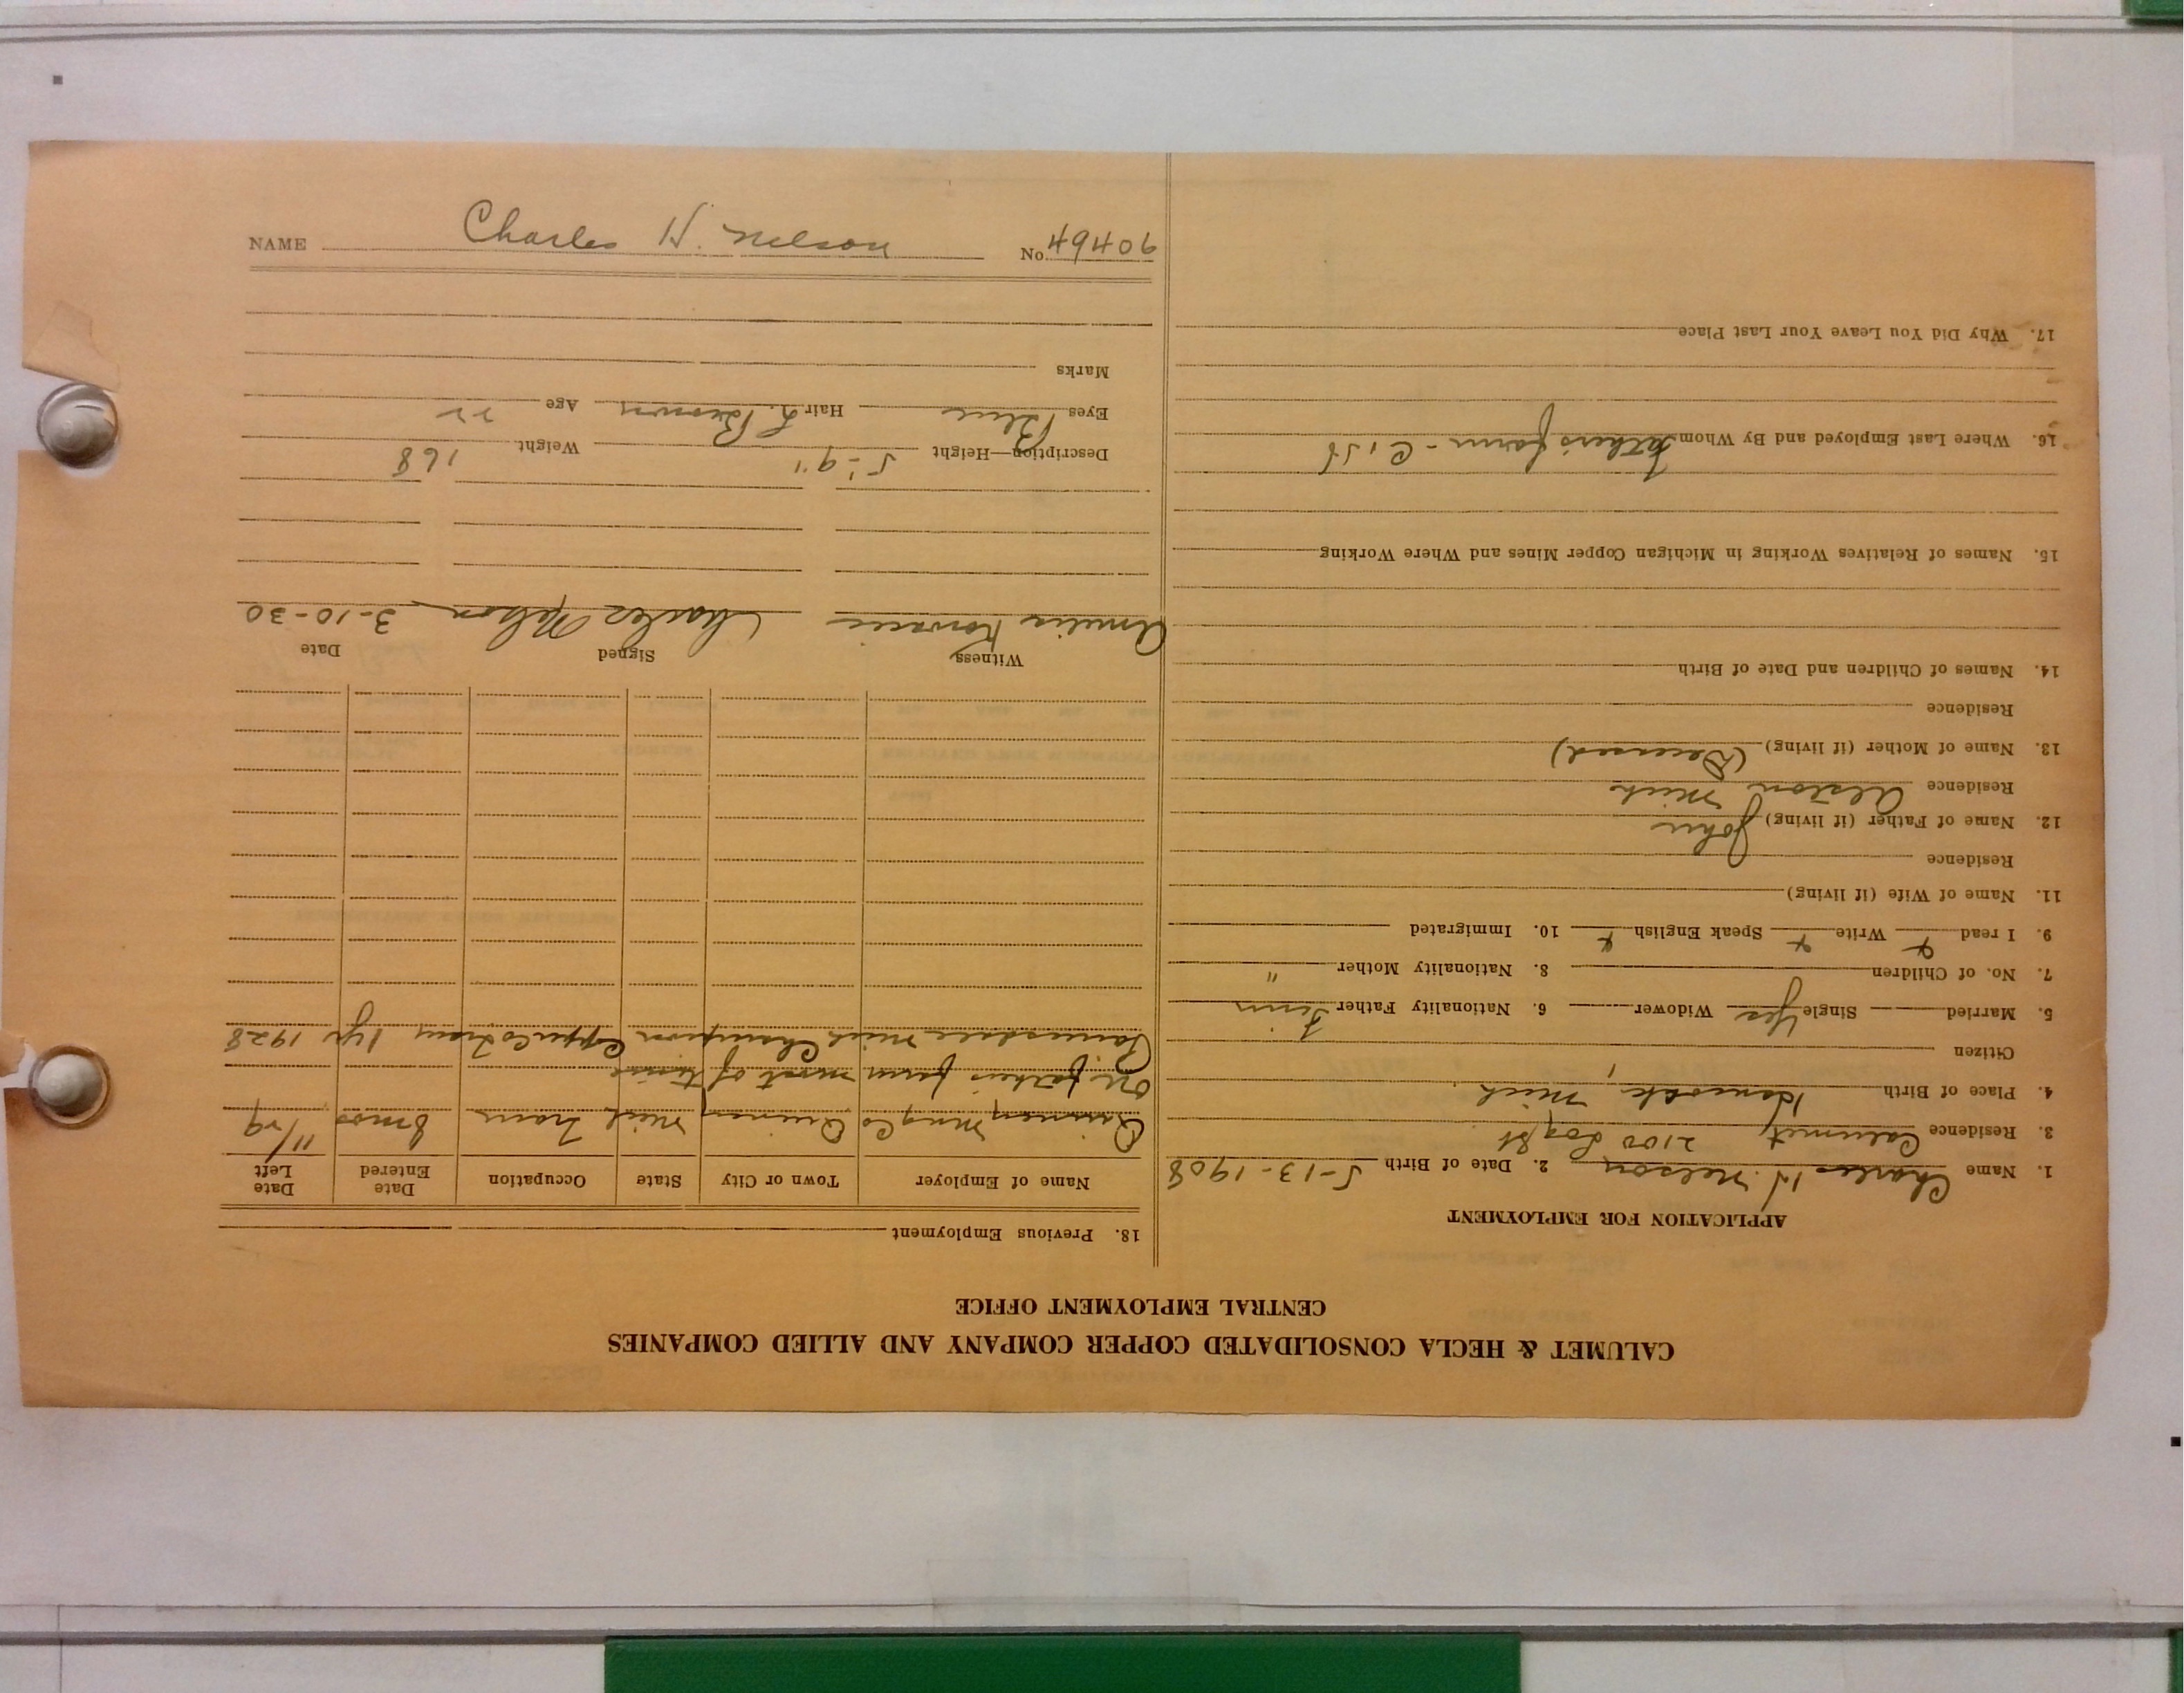 CALUMET & HECLA CONSOLIDATED COPPER COMPANY AND ALLIED COMPANIES
CENTRAL EMPLOYMENT OFFICE
APPLICATION FOR EMPLOYMENT
1. Name Charles H. Nelson 2. Date of Birth 5-13-1908
3. Residence Calumet 2100 Log St
4. Place of Birth Mich.
Citizen
5. Married Single Yes Widower 6. Nationality Father Finn
7. No. of Children 8. Nationality Mother "
9. I read Write Speak English 10. Immigrated
11. Name of Wife (if living)
Residence
12. Name of Father (if living) John
Residence Alston Mich
13. Name of Mother (if living) (Deceased)
Residence
14. Names of Children and Date of Birth
15. Names of Relatives Working in Michigan Copper Mines and Where Working
16. Where Last Employed and By Whom Father's farm -
17. Why Did You Leave Your Last Place
18. Previous Employment
Name of Employer Town or City State Occupation Date Entered Date Left
Quincy Mng Co Quincy Mich Tram 8 mos 11/29
On father's farm most of time
Painesdale Mich Champion Copper Co Tram 1 yr 1928
Witness Signed Date
Amelia Charles Nelson 3-10-30
Description—Height 5'-9" Weight 168
Eyes Blue Hair L. Brown Age 22
Marks
NAME Charles H. Nelson No. 49406